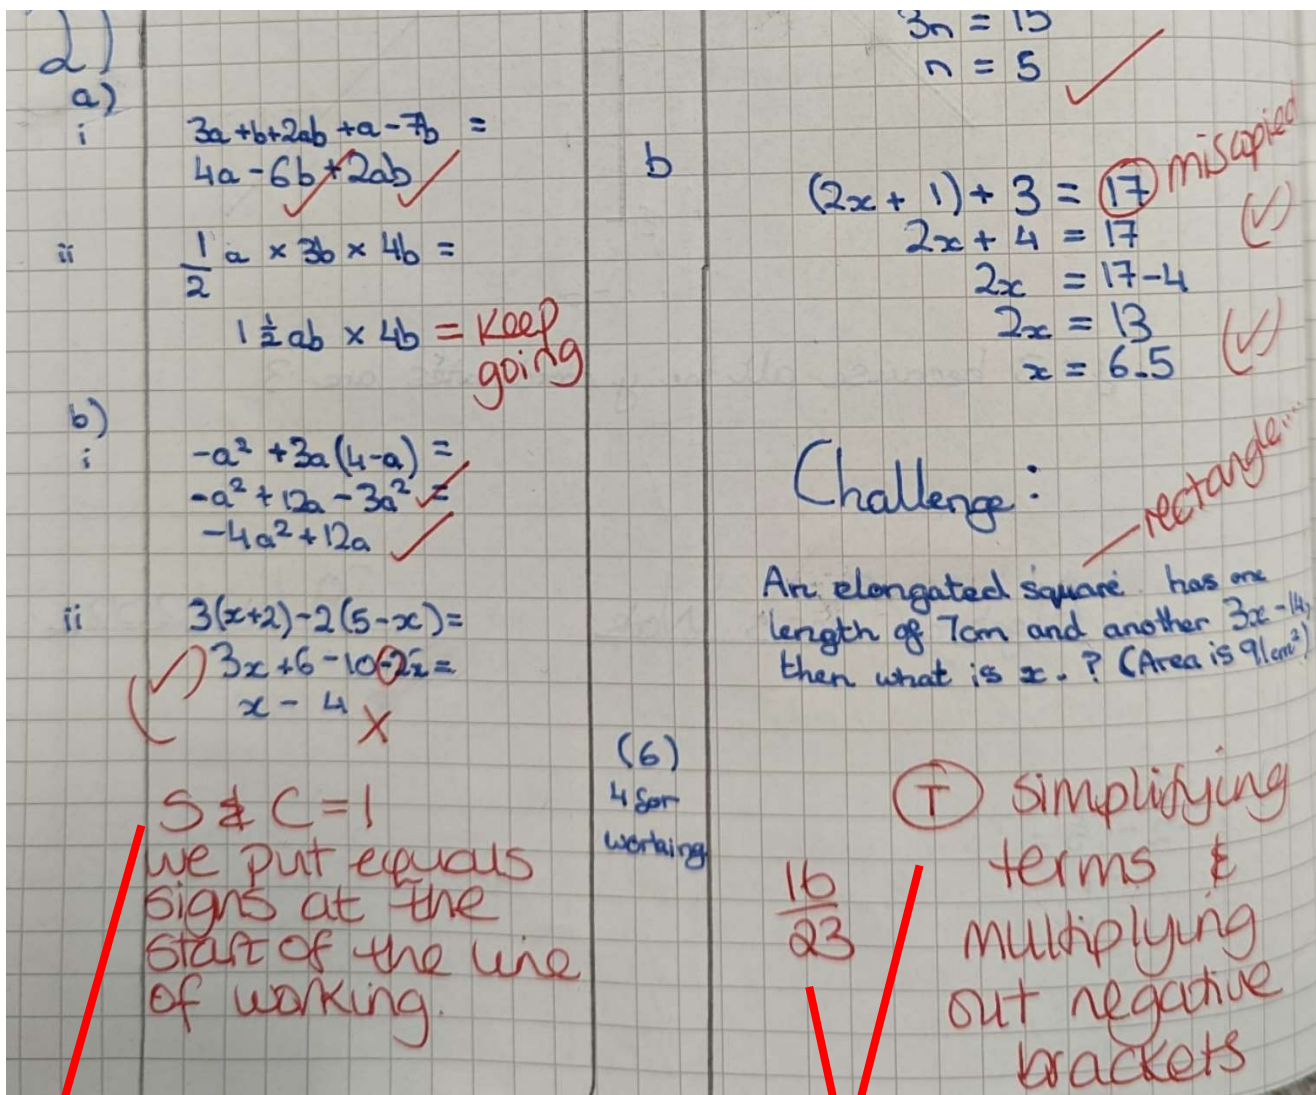 2)
a)
i
3a+b+2ab+a-7b =
4a-6b+2ab
ii
1/2 a × 3b × 4b =
1 1/2 ab × 4b = Keep
going
b)
i
-a² +3a(4-a) =
-a² + 12a - 3a² =
-4a²+12a
ii
3(x+2)-2(5-x)=
3x+6-10-2x=
x - 4
S & C = 1
we put equals
signs at the
start of the line
of working.
3n = 15
n = 5
b
(2x + 1) + 3 = 17 miscopied
2x + 4 = 17
2x = 17-4
2x = 13
x = 6.5
Challenge:
rectangle...
An elongated square has one
length of 7cm and another 3x-14,
then what is x.? (Area is 91cm²)
(6)
4 for
working
16/23
T simplifying
terms &
multiplying
out negative
brackets